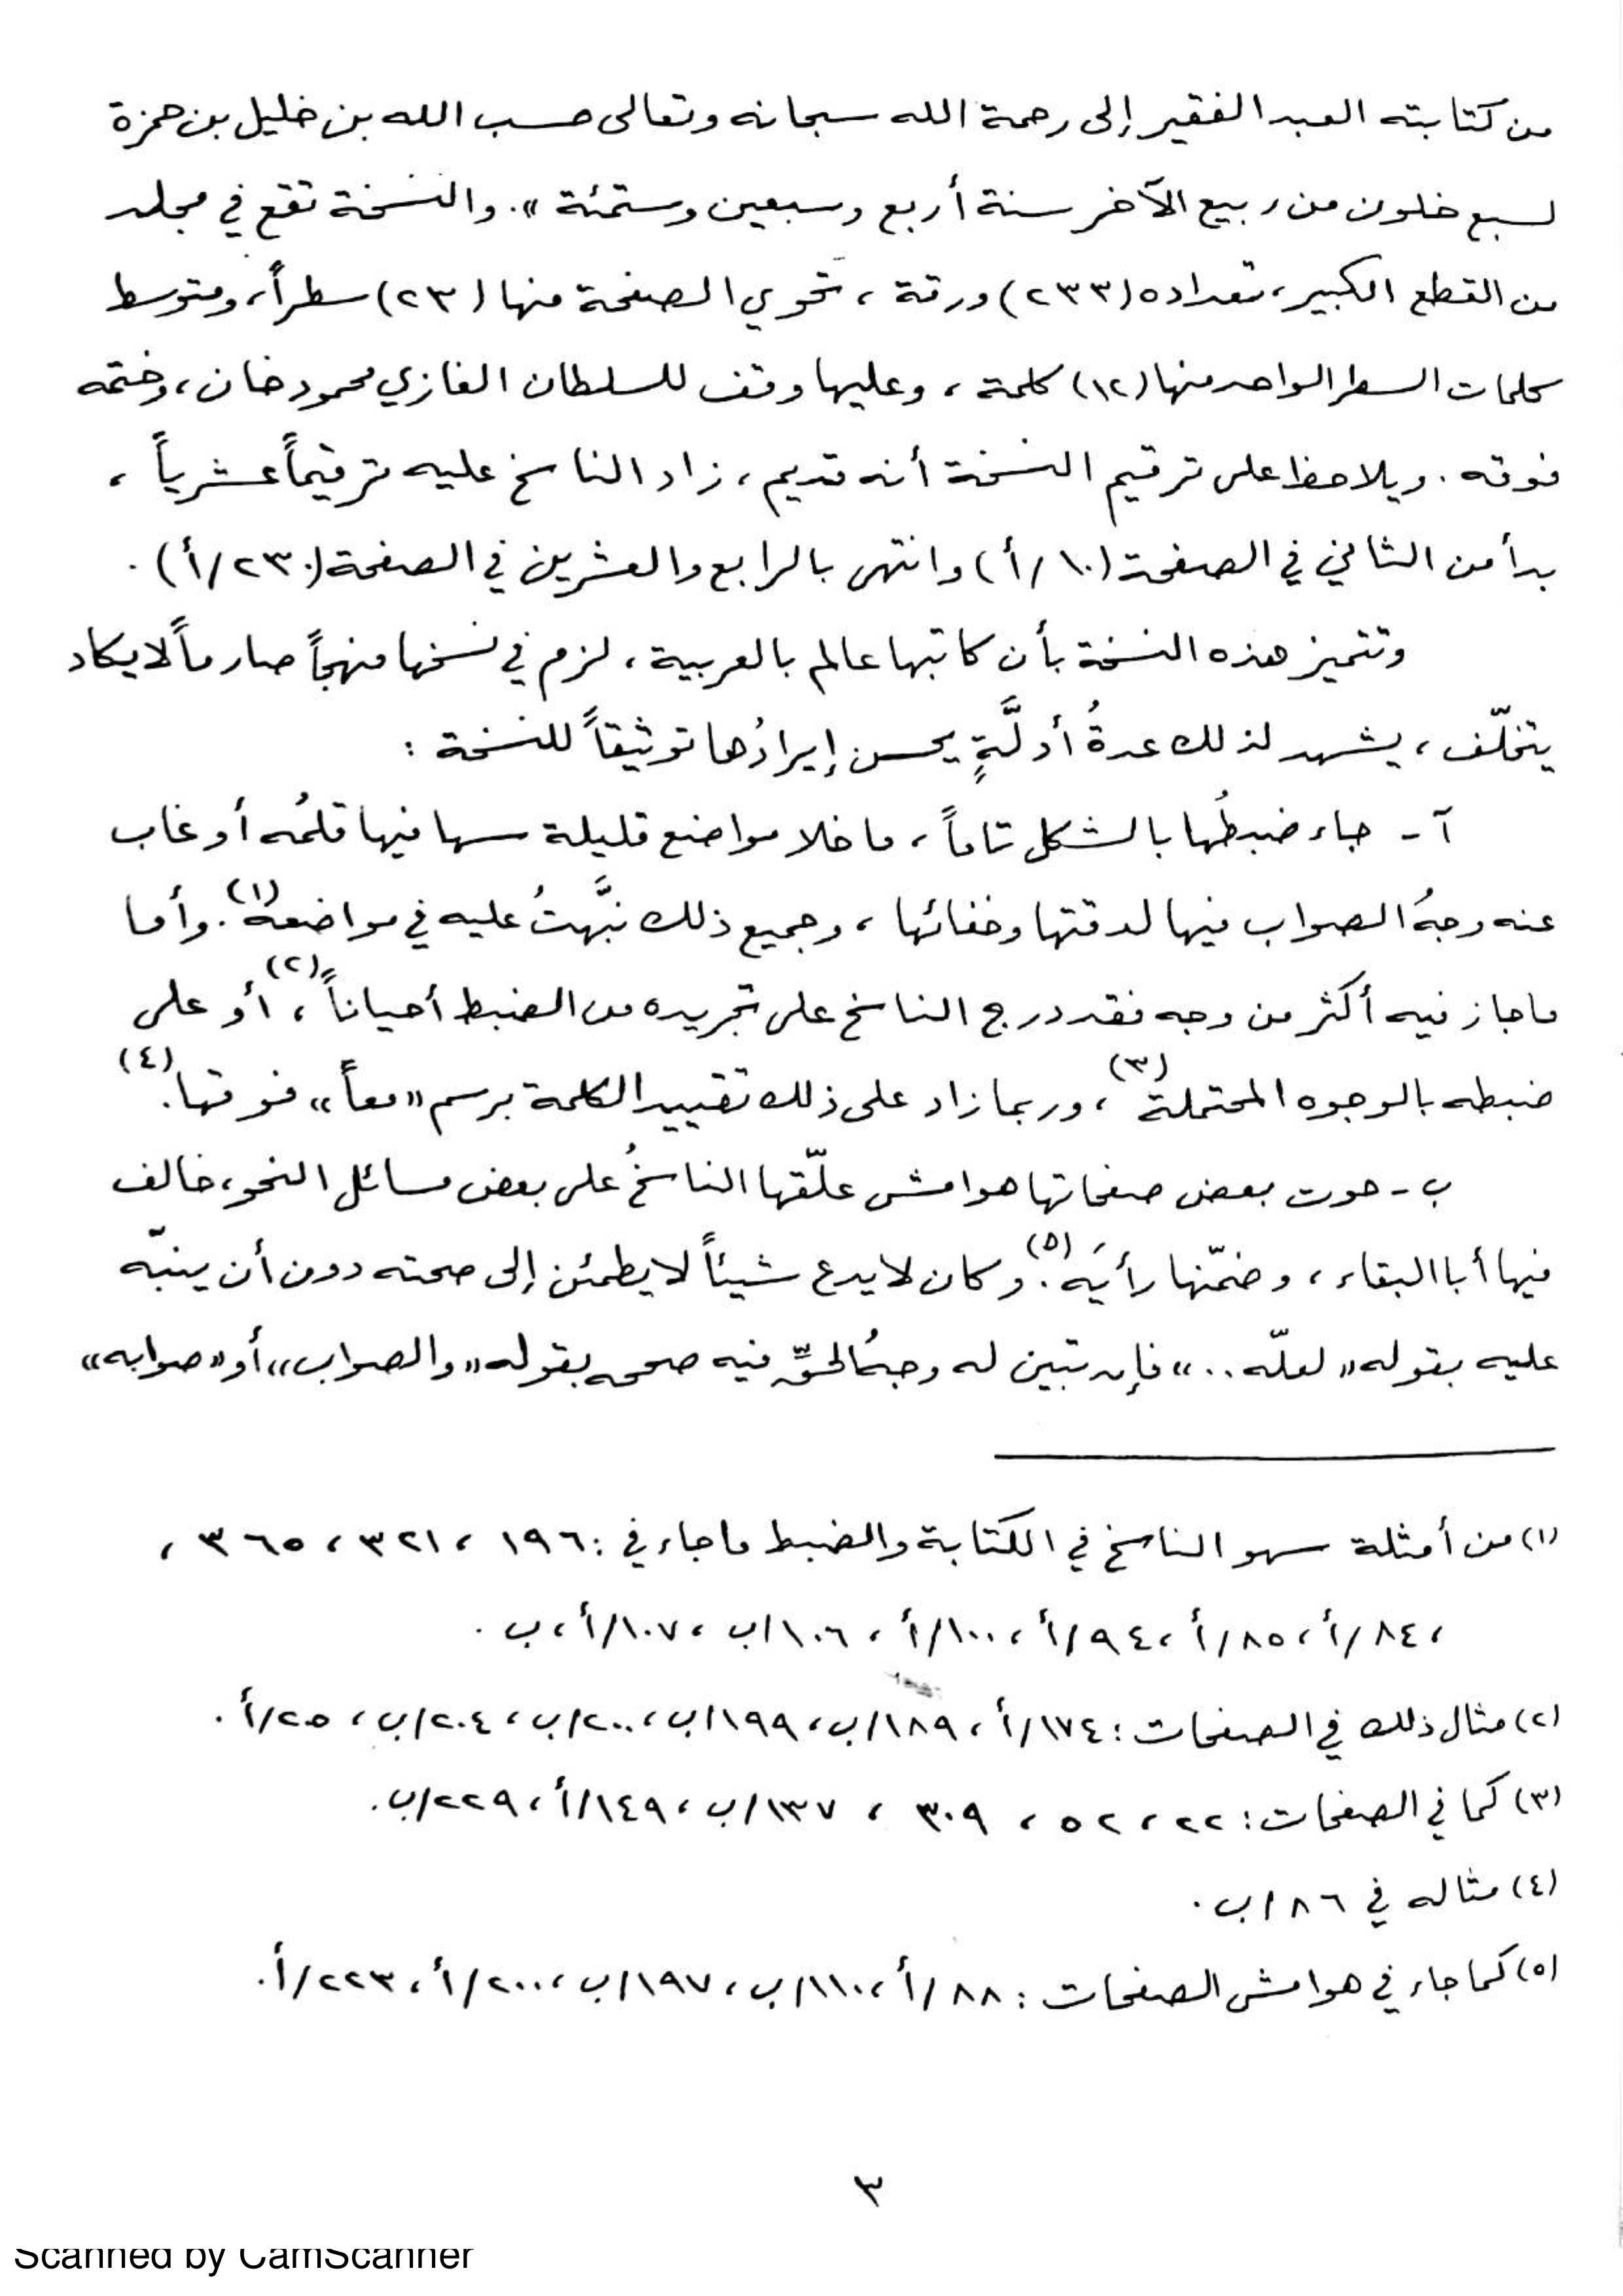 من كتابته العبد الفقير إلى رحمة الله سبحانه وتعالى حسب الله بن خليل بن حمزة
لسبع خلون من ربيع الآخر سنة أربع وسبعين وستمئة ». والنسخة تقع في مجلد
من القطع الكبير، تعداده (٢٣٣) ورقة ، تحوي الصفحة منها (٢٣) سطراً، ومتوسط
كلمات السطر الواحد منها (١٢) كلمة ، وعليها وقف للسلطان الغازي محمود خان، وختمه
فوقه . ويلاحظ على ترقيم النسخة أنه قديم، زاد الناسخ عليه ترقيماً عشرياً ،
بدأ من الثاني في الصفحة (١٠/أ) وانتهى بالرابع والعشرين في الصفحة (٢٣٠/أ) .
وتتميز هذه النسخة بأن كاتبها عالم بالعربية ، لزم في نسخها منهجاً صارماً لا يكاد
يتخلّف ، يشهد لذلك عدةُ أدلَّةٍ يحسن إيرادُها توثيقاً للنسخة :
آ - جاء ضبطُها بالشكل تاماً ، ما خلا مواضع قليلة سها فيها قلمُه أو غاب
عنه وجهُ الصواب فيها لدقتها وخفائها ، وجميع ذلك نبَّهتُ عليه في مواضعه(١). وأما
ما جاز فيه أكثر من وجه فقد درج الناسخ على تجريده من الضبط أحياناً(٢)، أو على
ضبطه بالوجوه المحتملة(٣) ، وربما زاد على ذلك تقييد الكلمة برسم «معاً» فوقها(٤).
ب - حوت بعض صفحاتها هوامش علّقها الناسخُ على بعض مسائل النحو، خالف
فيها أبا البقاء ، وضمّنها رأيَه(٥). وكان لا يدع شيئاً لا يطمئن إلى صحته دون أن ينبّه
عليه بقوله « لعلّه .. » فإن تبين له وجهُ الحقِّ فيه صححه بقوله «والصواب» أو «صوابه»
(١) من أمثلة سهو الناسخ في الكتابة والضبط ما جاء في : ١٩٦ ، ٣٢١ ، ٣٦٥ ،
، ٨٤/أ ، ٨٥/أ ، ٩٤/أ ، ١٠٠/أ ، ١٠٦/ب ، ١٠٧/أ ، ب .
(٢) مثال ذلك في الصفحات : ١٧٤/أ ، ١٨٩/ب ، ١٩٩/ب ، ٢٠٠/ب ، ٢٠٤/ب ، ٢٠٥/أ .
(٣) كما في الصفحات : ٢٢ ، ٥٢ ، ٣٠٩ ، ١٣٧/ب ، ١٤٩/أ ، ٢٢٩/ب .
(٤) مثاله في ٨٦/ب .
(٥) كما جاء في هوامش الصفحات : ٨٨/أ ، ١١٠/ب ، ١٩٧/ب ، ٢٠٠/أ ، ٢٢٣/أ .
٣
Scanned by CamScanner